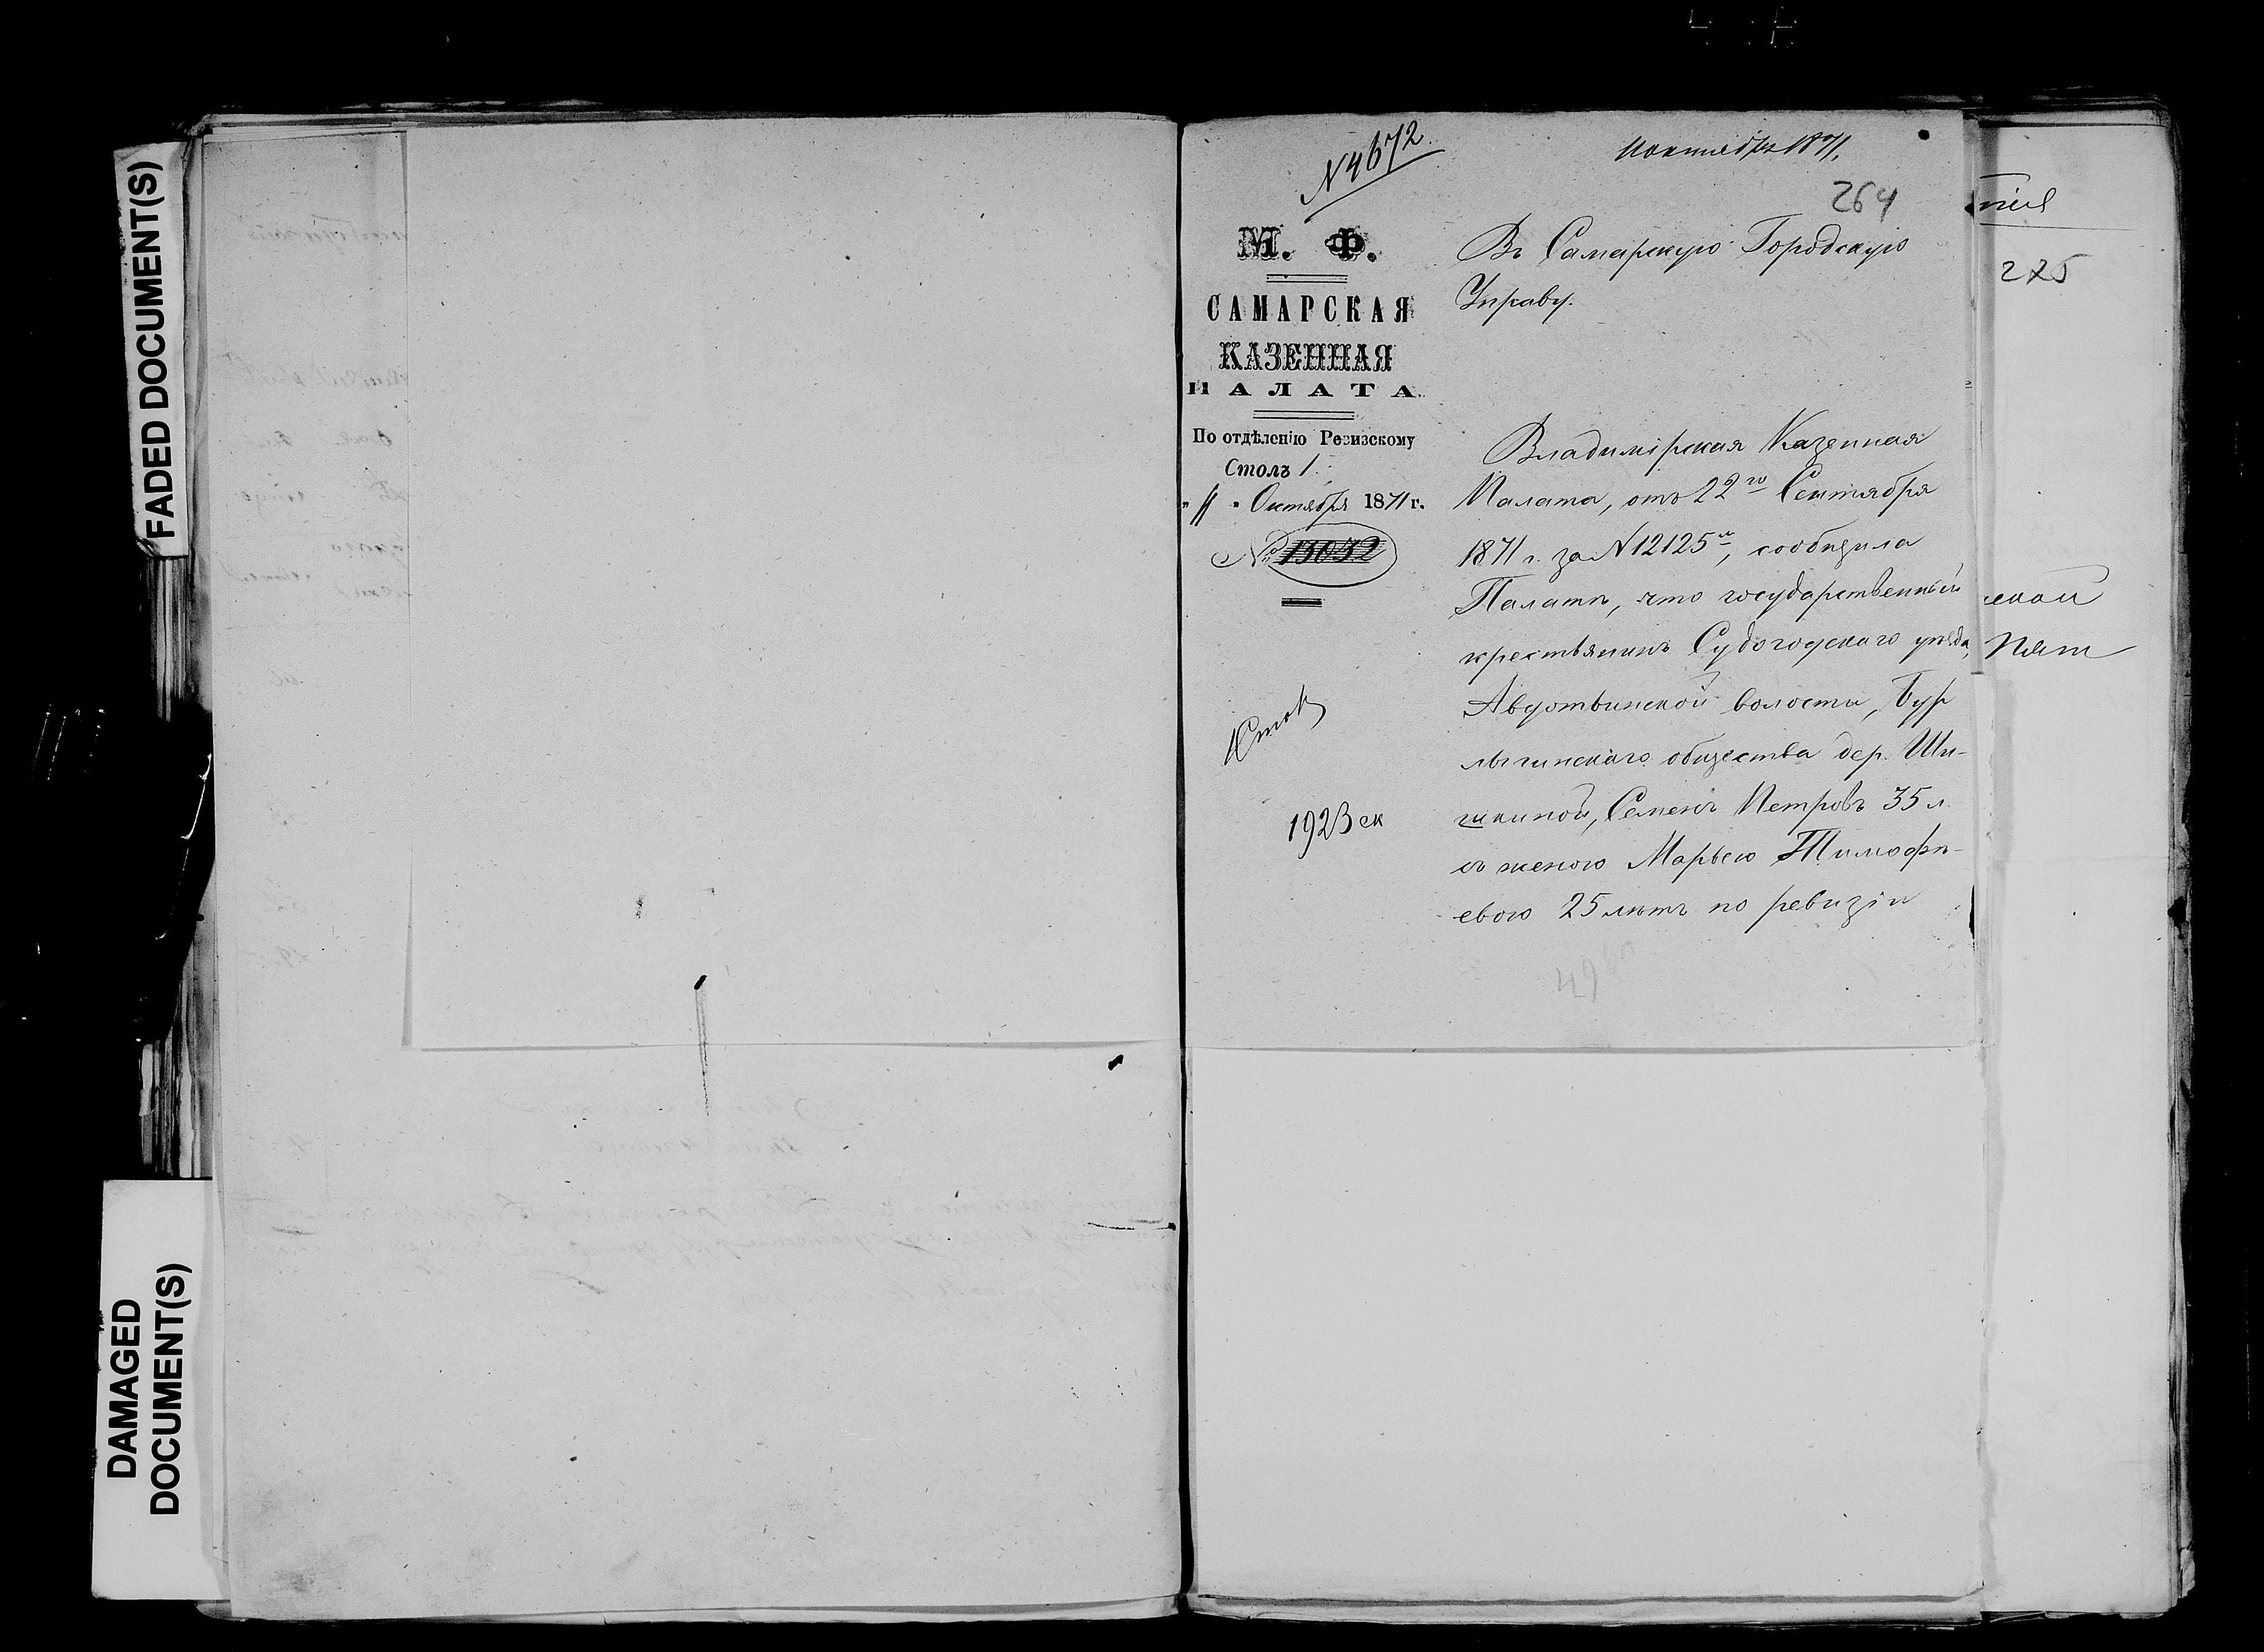 FADED DOCUMENT(S)
DAMAGED
DOCUMENT(S)
N 4672.
октября 1871.
264
М. Ф.
САМАРСКАЯ
КАЗЕННАЯ
ПАЛАТА.
По отдѣленію Ревизскому
Столъ 1.
" 11 " Октября 1871 г.
№ 13032
1923 ек
Въ Самарскую Городскую
Управу.
Владимірская Казенная
Палата, отъ 22го Сентября
1871 г. за N 12125м, сообщила
Палатѣ, что государственный
крестьянинъ Судогодскаго уѣзда,
Авдотьинской волости, Бур
лыгинскаго общества дер. Ши-
шкиной, Семенъ Петровъ 35 л.
съ женою Марьею Тимофѣ-
евою 25 лѣтъ по ревизіи
4960
225